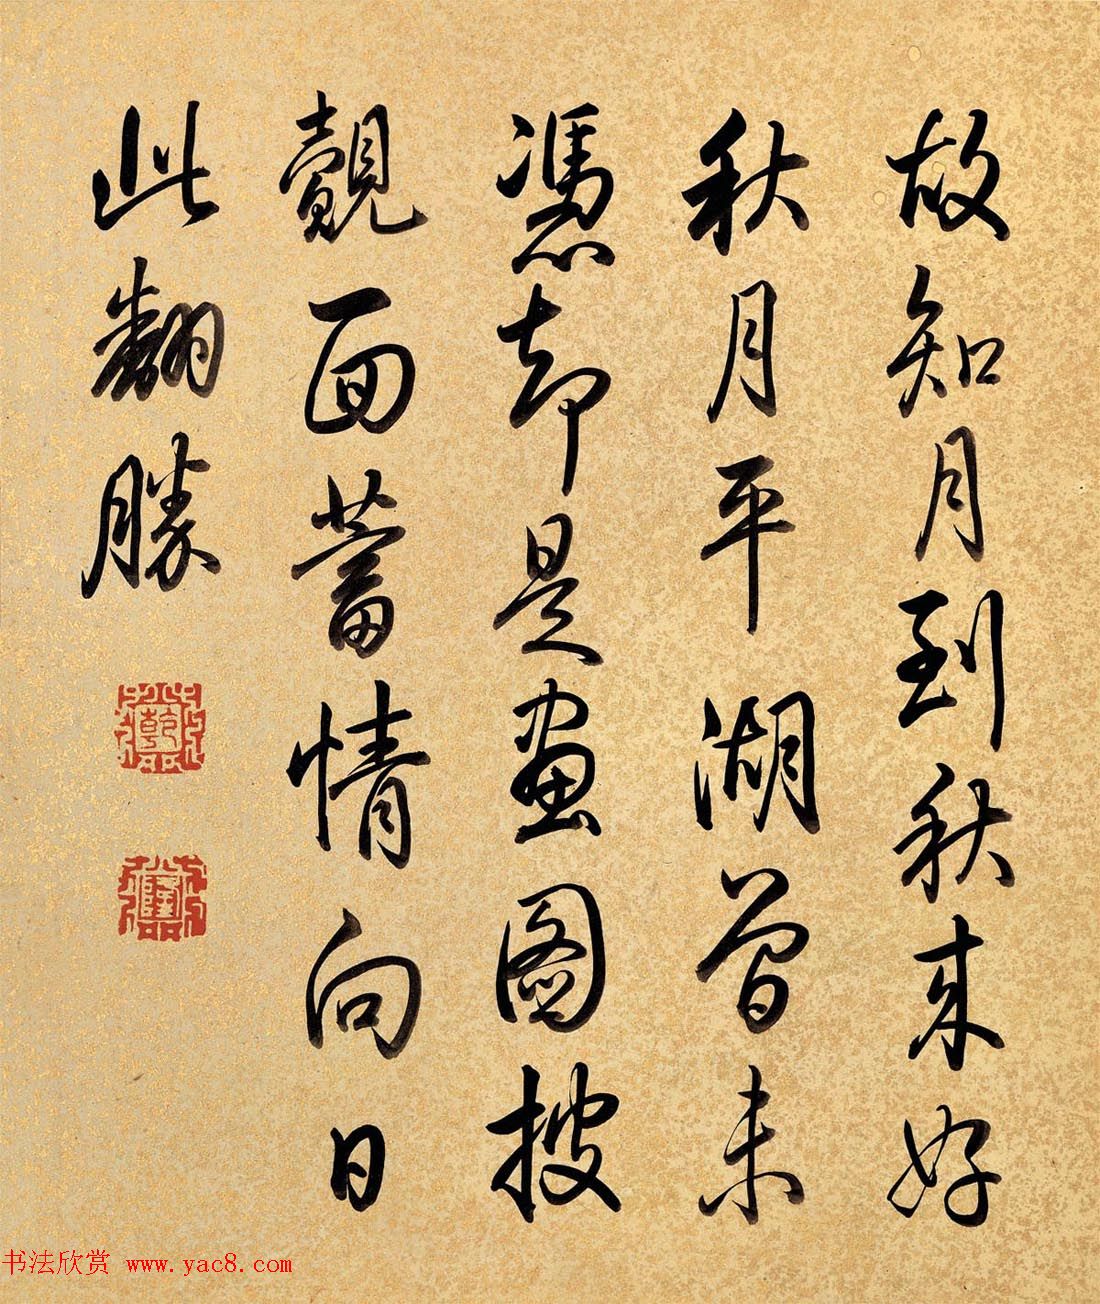 故知月到秋来好
秋月平湖曾未
憑却是畫圖披
覿面蓄情向日
此翻勝
乾
隆
书法欣赏 www.yac8.com